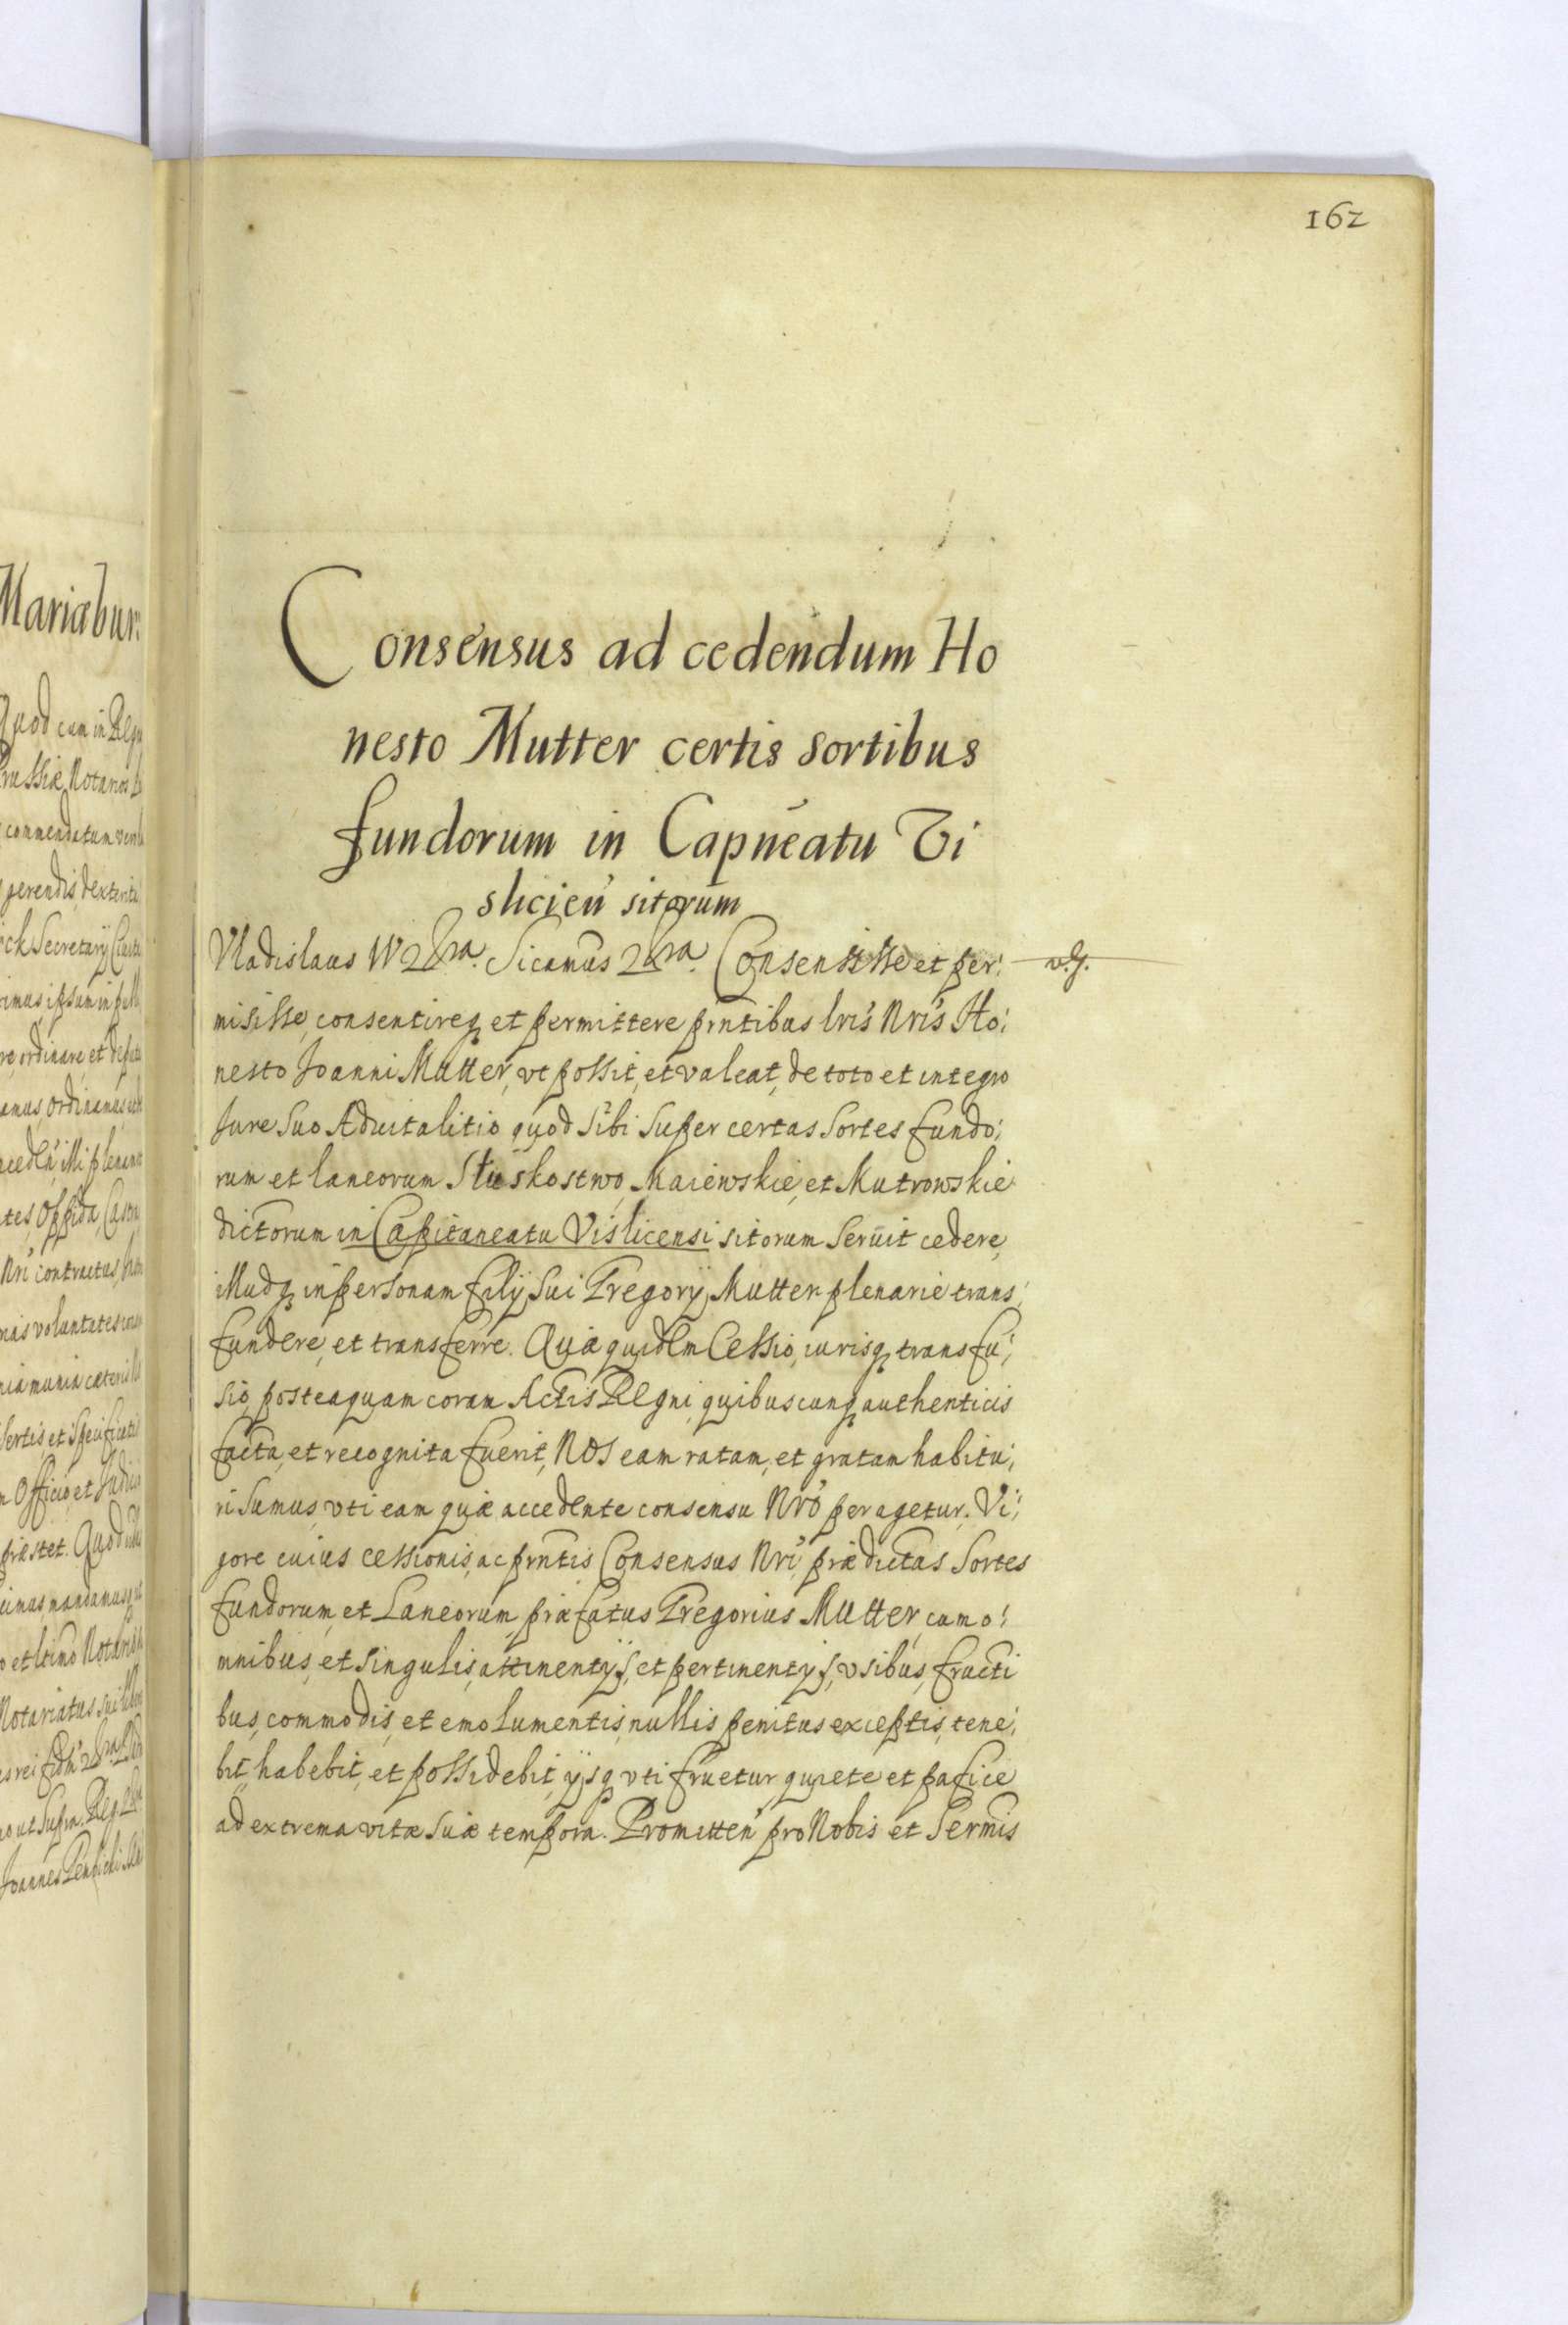 162
Consensus ad cedendum Ho
nesto Mutter certis sortibus
fundorum in Capneatu Vi
slicien sitorum
Vladislaus IV Sicamus Consensisse et per:
misisse, consentireq et permittere prntibus lris Nris Ho:
nesto Joanni Mutter, vt possit, et valeat, de toto et integro
Jure suo Aduitalitio quod sibi super certas sortes fundo:
rum et laneorum Stuskostwo, Maiewskie, et Mutrowskie
dictorum in Capitaneatu Vislicensi sitorum seruit cedere,
illudq in personam filij sui Gregorij Mutter plenarie trans:
fundere, et transferre. Quæ quidem Cessio, iurisq transfu:
sio, posteaquam coram Actis Regni quibuscunq authenticis
facta, et recognita fuerit, Nos eam ratam, et gratam habitu:
ri sumus, vti eam quæ accedente consensu Nro peragetur. Vi:
gore cuius cessionis, ac prntis Consensus Nri, prædictas sortes
fundorum, et Laneorum, præfatus Gregorius Mutter, cum o:
mnibus, et singulis, attinentijs, et pertinentijs, vsibus, fructi
bus, commodis, et emolumentis, nullis penitus exceptis, tene:
bit, habebit, et possidebit, ijsq vti fruetur, quiete et pafice
ad extrema vitæ suæ tempora. Promitten pro Nobis et Sermis